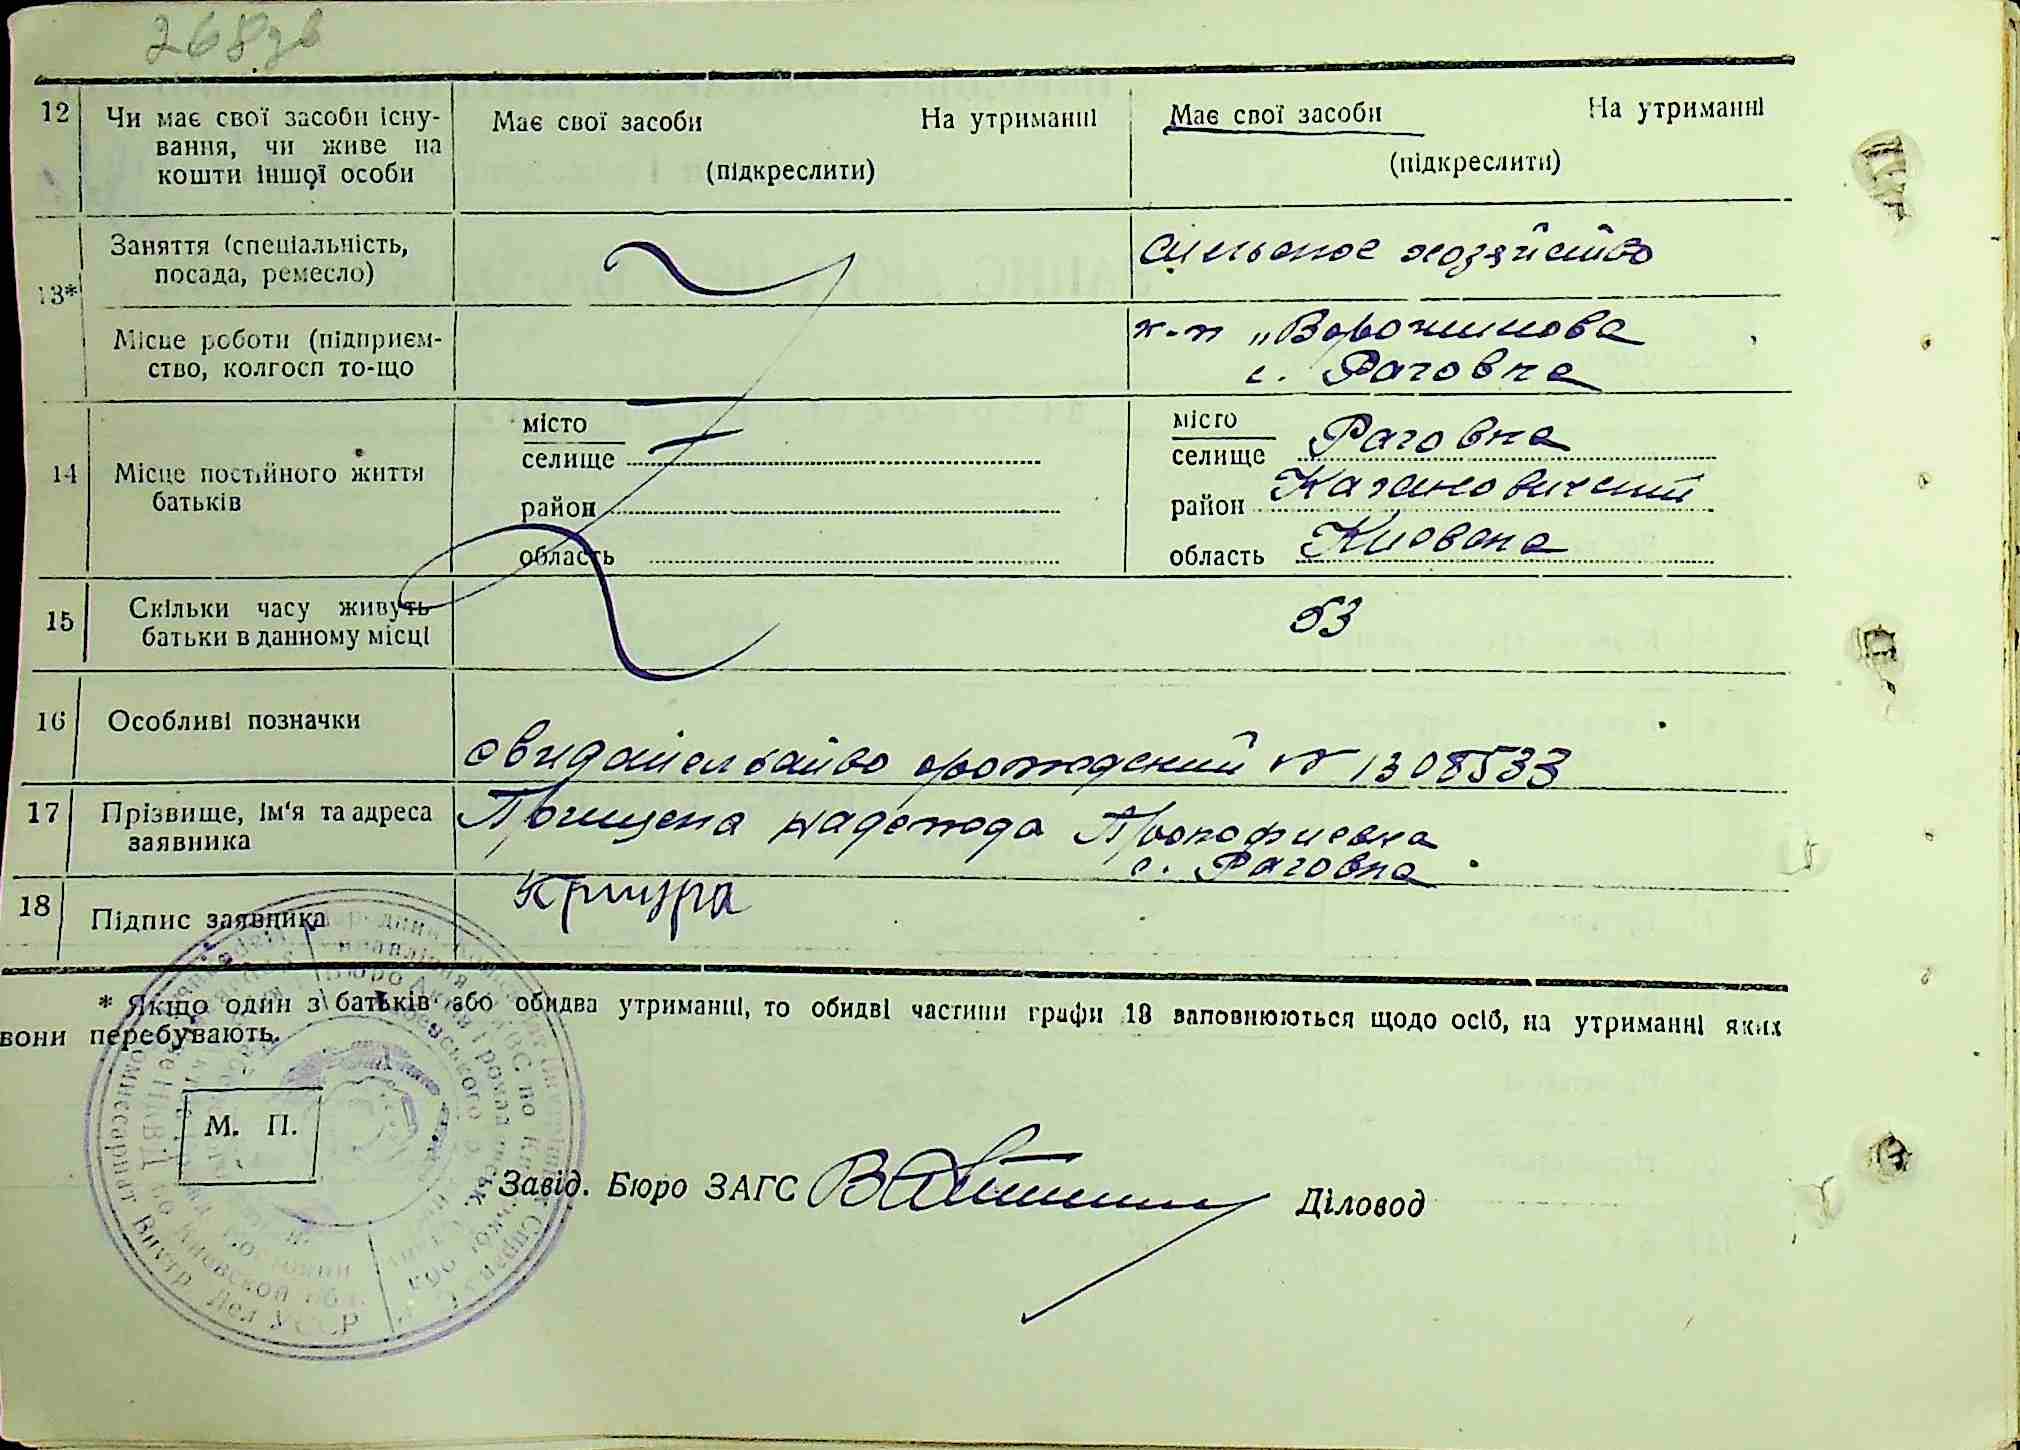 268 зв
12 Чи має свої засоби існу-
вання, чи живе на
кошти іншої особи
Має свої засоби На утриманні
(підкреслити)
Має свої засоби На утриманні
(підкреслити)
13*
Заняття (спеціальність,
посада, ремесло)
сильское хозяйство
Місце роботи (підприєм-
ство, колгосп то-що
к-п „Ворошилова
с. Раговка
14 Місце постійного життя
батьків
місто
селище
район
область
місто
селище Раговка
район Кагановичский
область Киевска
15 Скільки часу живуть
батьки в данному місці
53
16 Особливі позначки
свидайельсйво №1308533
17 Прізвище, ім'я та адреса
заявника
надежда Прокофиевна
с. Раговка
18 Підпис заявника
* Якщо один з батьків або обидва утриманці, то обидві частини графи 13 заповнюються щодо осіб, на утриманні яких
вони перебувають.
М. П.
Завід. Бюро ЗАГС
Діловод
Комиссариат Внутр. Дел УССР
по Киевской обл.